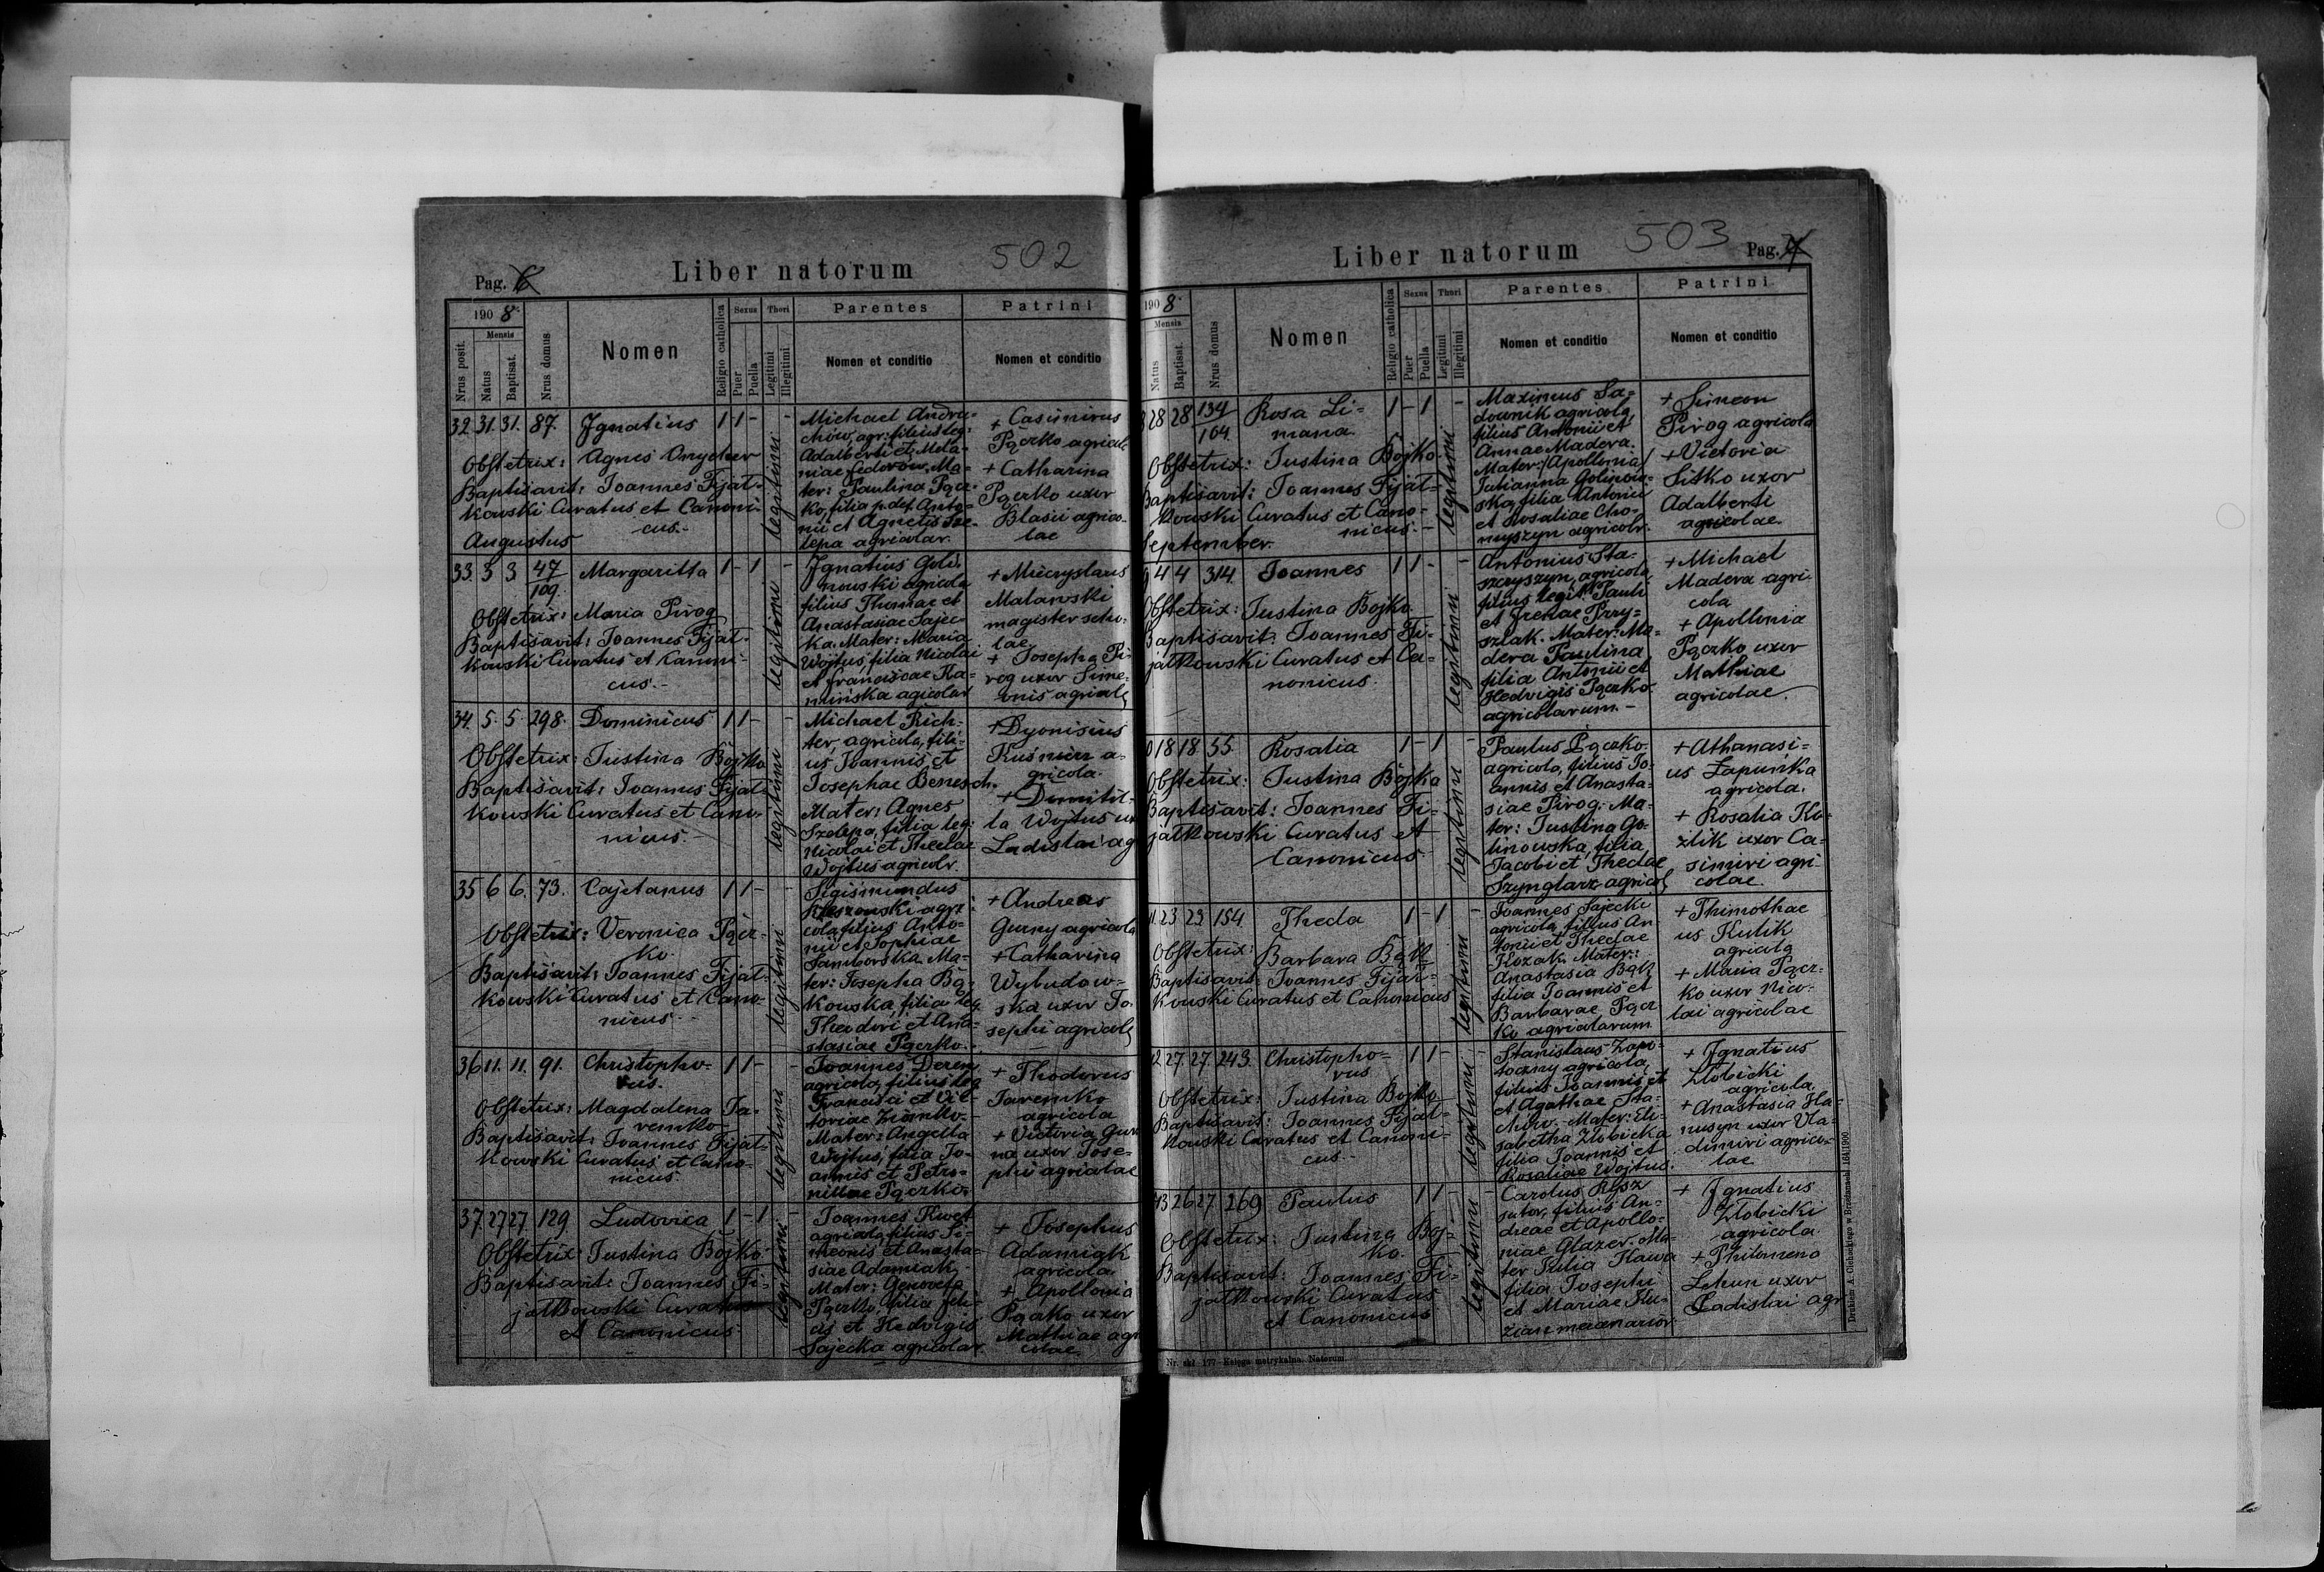 Pag. 6
Liber natorum
502
1908.
Nrus posit.
Mensis
Natus
Baptisat.
Nrus domus
Nomen
Religio catholica
Sexus
Puer
Puella
Thori
Legitimi
Illegitimi
Parentes
Nomen et conditio
Patrini
Nomen et conditio
32. 31. 31. 87. Ignatius 1 1 - -
Obstetrix: Agnes Onycher
Baptisavit: Joannes Fijał-
kowski Curatus et Canoni-
cus.-
legitimi
Michael Andru-
chów, agr. filius leg.
Adalberti et Mela-
niae Fedorów. Ma-
ter: Paulina Pącz-
ko, filia p. def. Anto-
nii et Agnetis Sze-
lepa agricolar.
+ Casimirus
Pączko agricola
+ Catharina
Pączko uxor
Blasii agrico-
lae
Augustus
33. 3 3 47/109 Margaritta 1 - 1 -
Obstetrix: Maria Pirog
Baptisavit: Joannes Fijał-
kowski Curatus et Canoni-
cus.-
legitimi
Ignatius Goli-
nowski agricola
filius Thomae et
Anastasiae Sajec-
ka. Mater: Maria
Wojtus, filia Nicolai
et Franciscae Ka-
mińska agricolar
+ Miecryslaus
Malawski
magister scho-
lae
+ Josepha Pi-
rog uxor Sime-
onis agricola
34. 5. 5. 298. Dominicus 1 1 - -
Obstetrix: Justina Bojko
Baptisavit: Joannes Fijał-
kowski Curatus et Cano-
nicus.-
legitimi
Michael Rich-
ter, agricola, fili-
us Joannis et
Josephae Benesch.
Mater: Agnes
Szelepa, filia leg:
Nicolai et Theclae
Wojtus agricolr.
+ Dyonisius
Kuśnierz a-
gricola.
+ Domitil-
la Wojtus ux
Ladislai ag
35 6 6. 73. Cajetanus 1 1 - -
Obstetrix: Veronica Pącz-
ko.
Baptisavit: Joannes Fijał-
kowski Curatus et Cano-
nicus.-
legitimi
Sigismundus
agri-
cola filius Anto-
nii et Sophiae
Samborska. Ma-
ter: Josepha Bą-
kowska, filia leg.
Theodori et Ana-
stasiae Pączko.
+ Andreas
Gurny agricola
+ Catharina
Wybudow-
ska uxor Jo-
sephi agricola
36 11. 11. 91. Christopho-
rus. 1 1 - -
Obstetrix: Magdalena Ja-
remko
Baptisavit: Joannes Fijał-
kowski Curatus et Cano-
nicus.
legitimi
Joannes Deren
agricola, filius leg
Francisci et Vic-
toriae Zianko.-
Mater: Angella
Wojtus, filia Jo-
annis et Petro-
nillae Pączko.
+ Thodorus
Jaremko
agricola
+ Victoria Gur
na uxor Jose-
phi agricolae
37 27 27 129 Ludovica 1 - 1 -
Obstetrix: Justina Bojko
Baptisavit: Joannes Fi-
jałkowski Curatus
et Canonicus
legitimi
Joannes Kwet
agricola, filius Si-
meonis et Anasta-
siae Adamiak
Mater: Genovefa
Pączko, filia feli-
cis et Hedvigis
Sajecka agricolar.
+ Josephus
Adamiak
agricola
+ Apollonia
Pączko uxor
Mathiae agri
colae
Liber natorum
503
Pag. 7
1908.
Mensis
Natus
Baptisat.
Nrus domus
Nomen
Religio catholica
Sexus
Puer
Puella
Thori
Legitimi
Illegitimi
Parentes
Nomen et conditio
Patrini
Nomen et conditio
8 28 28 134/104. Rosa Li-
mana. 1 - 1 -
Obstetrix: Justina Bojko
Baptisavit: Joannes Fijał-
kowski Curatus et Cano-
nicus.-
legitimi
Maximus Sa-
downik agricola,
filius Antonii et
Annae Madera.
Mater: (Apollonia)
Julianna Golinow-
ska, filia Antonii
et Rosaliae Cho-
myszyn agricolr.
+ Simeon
Pirog agricola
+ Victoria
Sitko uxor
Adalberti
agricolae
September.
9 4 4 314 Joannes 1 1 - -
Obstetrix: Justina Bojko
Baptisavit: Joannes Fi-
jałkowski Curatus et Ca-
nonicus.
legitimi
Antonius Sta-
szczyszyn, agricola
filius legit. Pauli
et Irenae Przy-
szlak. Mater: Ma-
dera Paulina
filia Antonii et
Hedvigis Pączko.
agricolarum.-
+ Michael
Madera agri-
cola
+ Apollonia
Pączko uxor
Mathiae
agricolae
0 18 18. 55. Rosalia 1 - 1 -
Obstetrix: Justina Bojko
Baptisavit: Joannes Fi-
jałkowski Curatus et
Canonicus
legitimi
Paulus Pączko
agricola, filius Jo-
annis et Anasta-
siae Pirog. Ma-
ter: Justina Go-
linowska, filia
Jacobi et Theclae
Szynglarz agricol
+ Athanasi-
us Łapuńka
agricola.
+ Rosalia Ko-
zlik uxor Ca-
simiri agri-
colae
11 23 23. 154 Thecla 1 - 1 -
Obstetrix: Barbara Bąk
Baptisavit: Joannes Fijał-
kowski Curatus et Canonicus
legitimi
Joannes Sajecki
agricola filius An
tonii et Theclae
Kozak. Mater:
Anastasia Bąk
filia Joannis et
Barbarae Pącz
ko agricolarum
+ Thimothae
us Kulik
agricola
+ Maria Pącz-
ko uxor Nico-
lai agricolae
12 27. 27. 243. Christopho-
rus 1 1 - -
Obstetrix: Justina Bojko
Baptisavit: Joannes Fijał-
kowski Curatus et Canoni-
cus.-
legitimi
Stanislaus Zapo-
toczny agricola,
filius Joannis et
et Agathae Sta-
chiw. Mater: Eli-
sabetha Złobicka
filia Joannis et
Rosaliae Wojtus.
+ Ignatius
Złobicki
agricola.
+ Anastasia Ha-
nusyn uxor Vla-
dimiri agrico-
lae
43 26 27 269 Paulus 1 1 - -
Obstetrix: Justina Boj-
ko.
Baptisavit: Joannes Fi-
jałkowski Curatus
et Canonicus
legitimi
Carolus Rysz
sutor, filius An-
dreae et Apollo-
niae Glazer. Ma-
ter Julia Kawa
filia Josephi
et Mariae Ku-
zian mercenarior
+ Ignatius
Złobicki
agricola
+ Philomena
Lehun uxor
Ladislai agr
Nr. skł. 177 Księga metrykalna. Natorum.